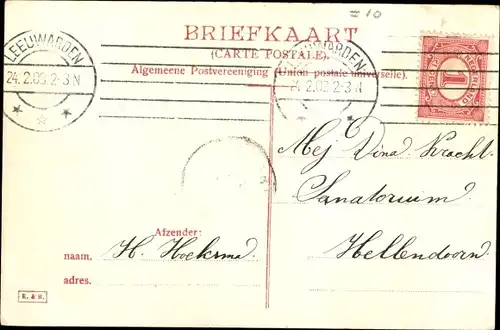 =10
BRIEFKAART
(CARTE POSTALE).
Algemeene Postvereeniging (Union postale universelle).
LEEUWARDEN
24.2.03.2-3N
LEEUWARDEN
24.2.03.2-3N
NEDERLAND
1
Mej Dina Kracht.
Sanatorium
Hellendoorn.
Afzender:
naam. H. Hoeksma
adres.